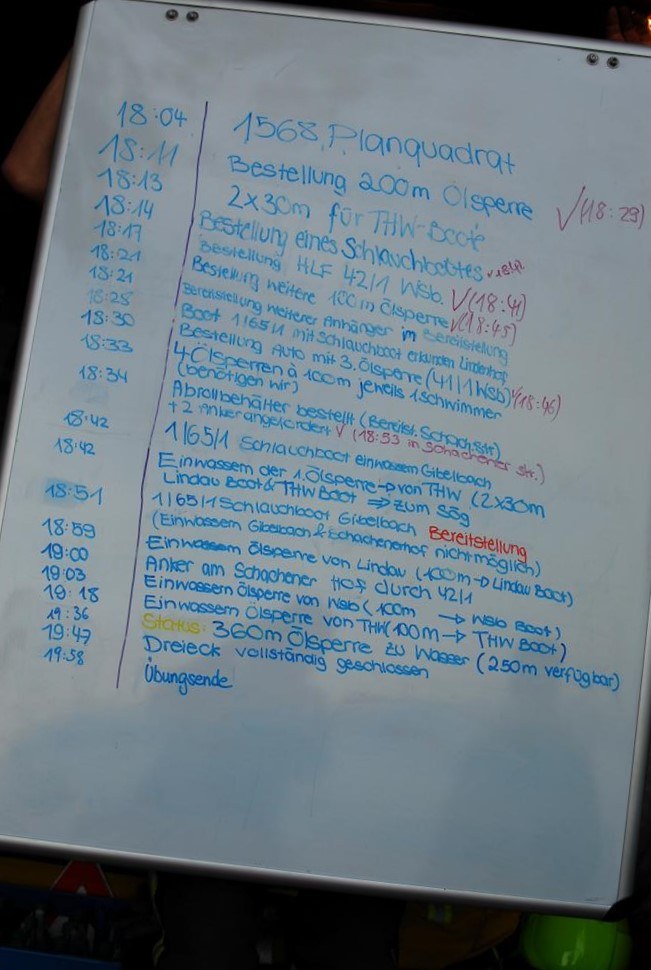 18:04 1568, Planquadrat
18:11 Bestellung 200m Ölsperre √(18:29)
18:13 2x30m für THW-Boote
18:14 Bestellung eines Schlauchbootes √
18:17 Bestellung HLF 42/1 Wsb. √(18:41)
18:21 Bestellung weitere 100m Ölsperre √(18:45)
18:21 Bereitstellung weiterer Anhänger im Bereitstellung
18:28 Boot 1/65/1 mit Schlauchboot erkunden Lindenhof
18:30 Bestellung Auto mit 3. Ölsperre (41/1 Wsb) √(18:46)
18:33 4 Ölsperren à 100m jeweils 1 Schwimmer
(benötigen wir)
18:34 Abrollbehälter bestellt (Bereitst. Schach.str)
+ 2 Anker angefordert √ (18:53 in Schachener Str.)
18:42 1/65/1 Schlauchboot einwassern Gibelbach
18:42 Einwassern der 1. Ölsperre → von THW (2x30m
Lindau Boot & THW Boot ⇒ zum Steg
18:51 1/65/1 Schlauchboot Gibelbach Bereitstellung
(Einwassern Gibelbach & Schachenerhof nicht möglich)
18:59 Einwassern Ölsperre von Lindau (100m → Lindau Boot)
19:00 Anker am Schachener Hof durch 42/1
19:03 Einwassern Ölsperre von Wsb (100m → Wsb Boot)
19:18 Einwassern Ölsperre von THW (100m → THW Boot)
19:36 Status: 360m Ölsperre zu Wasser (250m verfügbar)
19:47 Dreieck vollständig geschlossen
19:58 Übungsende